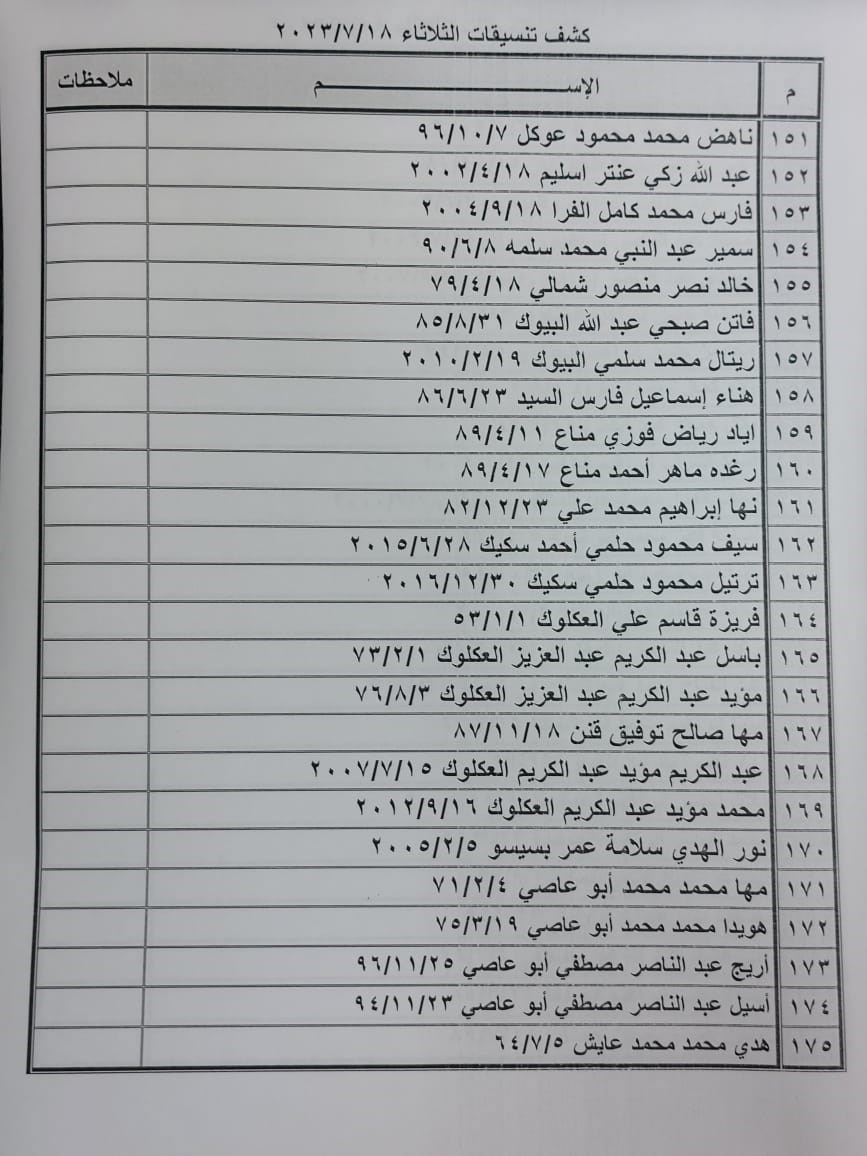 كشف تنسيقات الثلاثاء ٢٠٢٣/٧/١٨
م الإســـــــــــم ملاحظات
١٥١ ناهض محمد محمود عوكل ٩٦/١٠/٧
١٥٢ عبد الله زكي عنتر اسليم ٢٠٠٢/٤/١٨
١٥٣ فارس محمد كامل الفرا ٢٠٠٤/٩/١٨
١٥٤ سمير عبد النبي محمد سلمه ٩٠/٦/٨
١٥٥ خالد نصر منصور شمالي ٧٩/٤/١٨
١٥٦ فاتن صبحي عبد الله البيوك ٨٥/٨/٣١
١٥٧ ريتال محمد سلمي البيوك ٢٠١٠/٢/١٩
١٥٨ هناء إسماعيل فارس السيد ٨٦/٦/٢٣
١٥٩ اياد رياض فوزي مناع ٨٩/٤/١١
١٦٠ رغده ماهر أحمد مناع ٨٩/٤/١٧
١٦١ نها إبراهيم محمد علي ٨٢/١٢/٢٣
١٦٢ سيف محمود حلمي أحمد سكيك ٢٠١٥/٦/٢٨
١٦٣ ترتيل محمود حلمي سكيك ٢٠١٦/١٢/٣٠
١٦٤ فريزة قاسم علي العكلوك ٥٣/١/١
١٦٥ باسل عبد الكريم عبد العزيز العكلوك ٧٣/٢/١
١٦٦ مؤيد عبد الكريم عبد العزيز العكلوك ٧٦/٨/٣
١٦٧ مها صالح توفيق قنن ٨٧/١١/١٨
١٦٨ عبد الكريم مؤيد عبد الكريم العكلوك ٢٠٠٧/٧/١٥
١٦٩ محمد مؤيد عبد الكريم العكلوك ٢٠١٢/٩/١٦
١٧٠ نور الهدي سلامة عمر بسيسو ٢٠٠٥/٢/٥
١٧١ مها محمد محمد أبو عاصي ٧١/٢/٤
١٧٢ هويدا محمد محمد أبو عاصي ٧٥/٣/١٩
١٧٣ أريج عبد الناصر مصطفي أبو عاصي ٩٦/١١/٢٥
١٧٤ أسيل عبد الناصر مصطفي أبو عاصي ٩٤/١١/٢٣
١٧٥ هدي محمد محمد عايش ٦٤/٧/٥